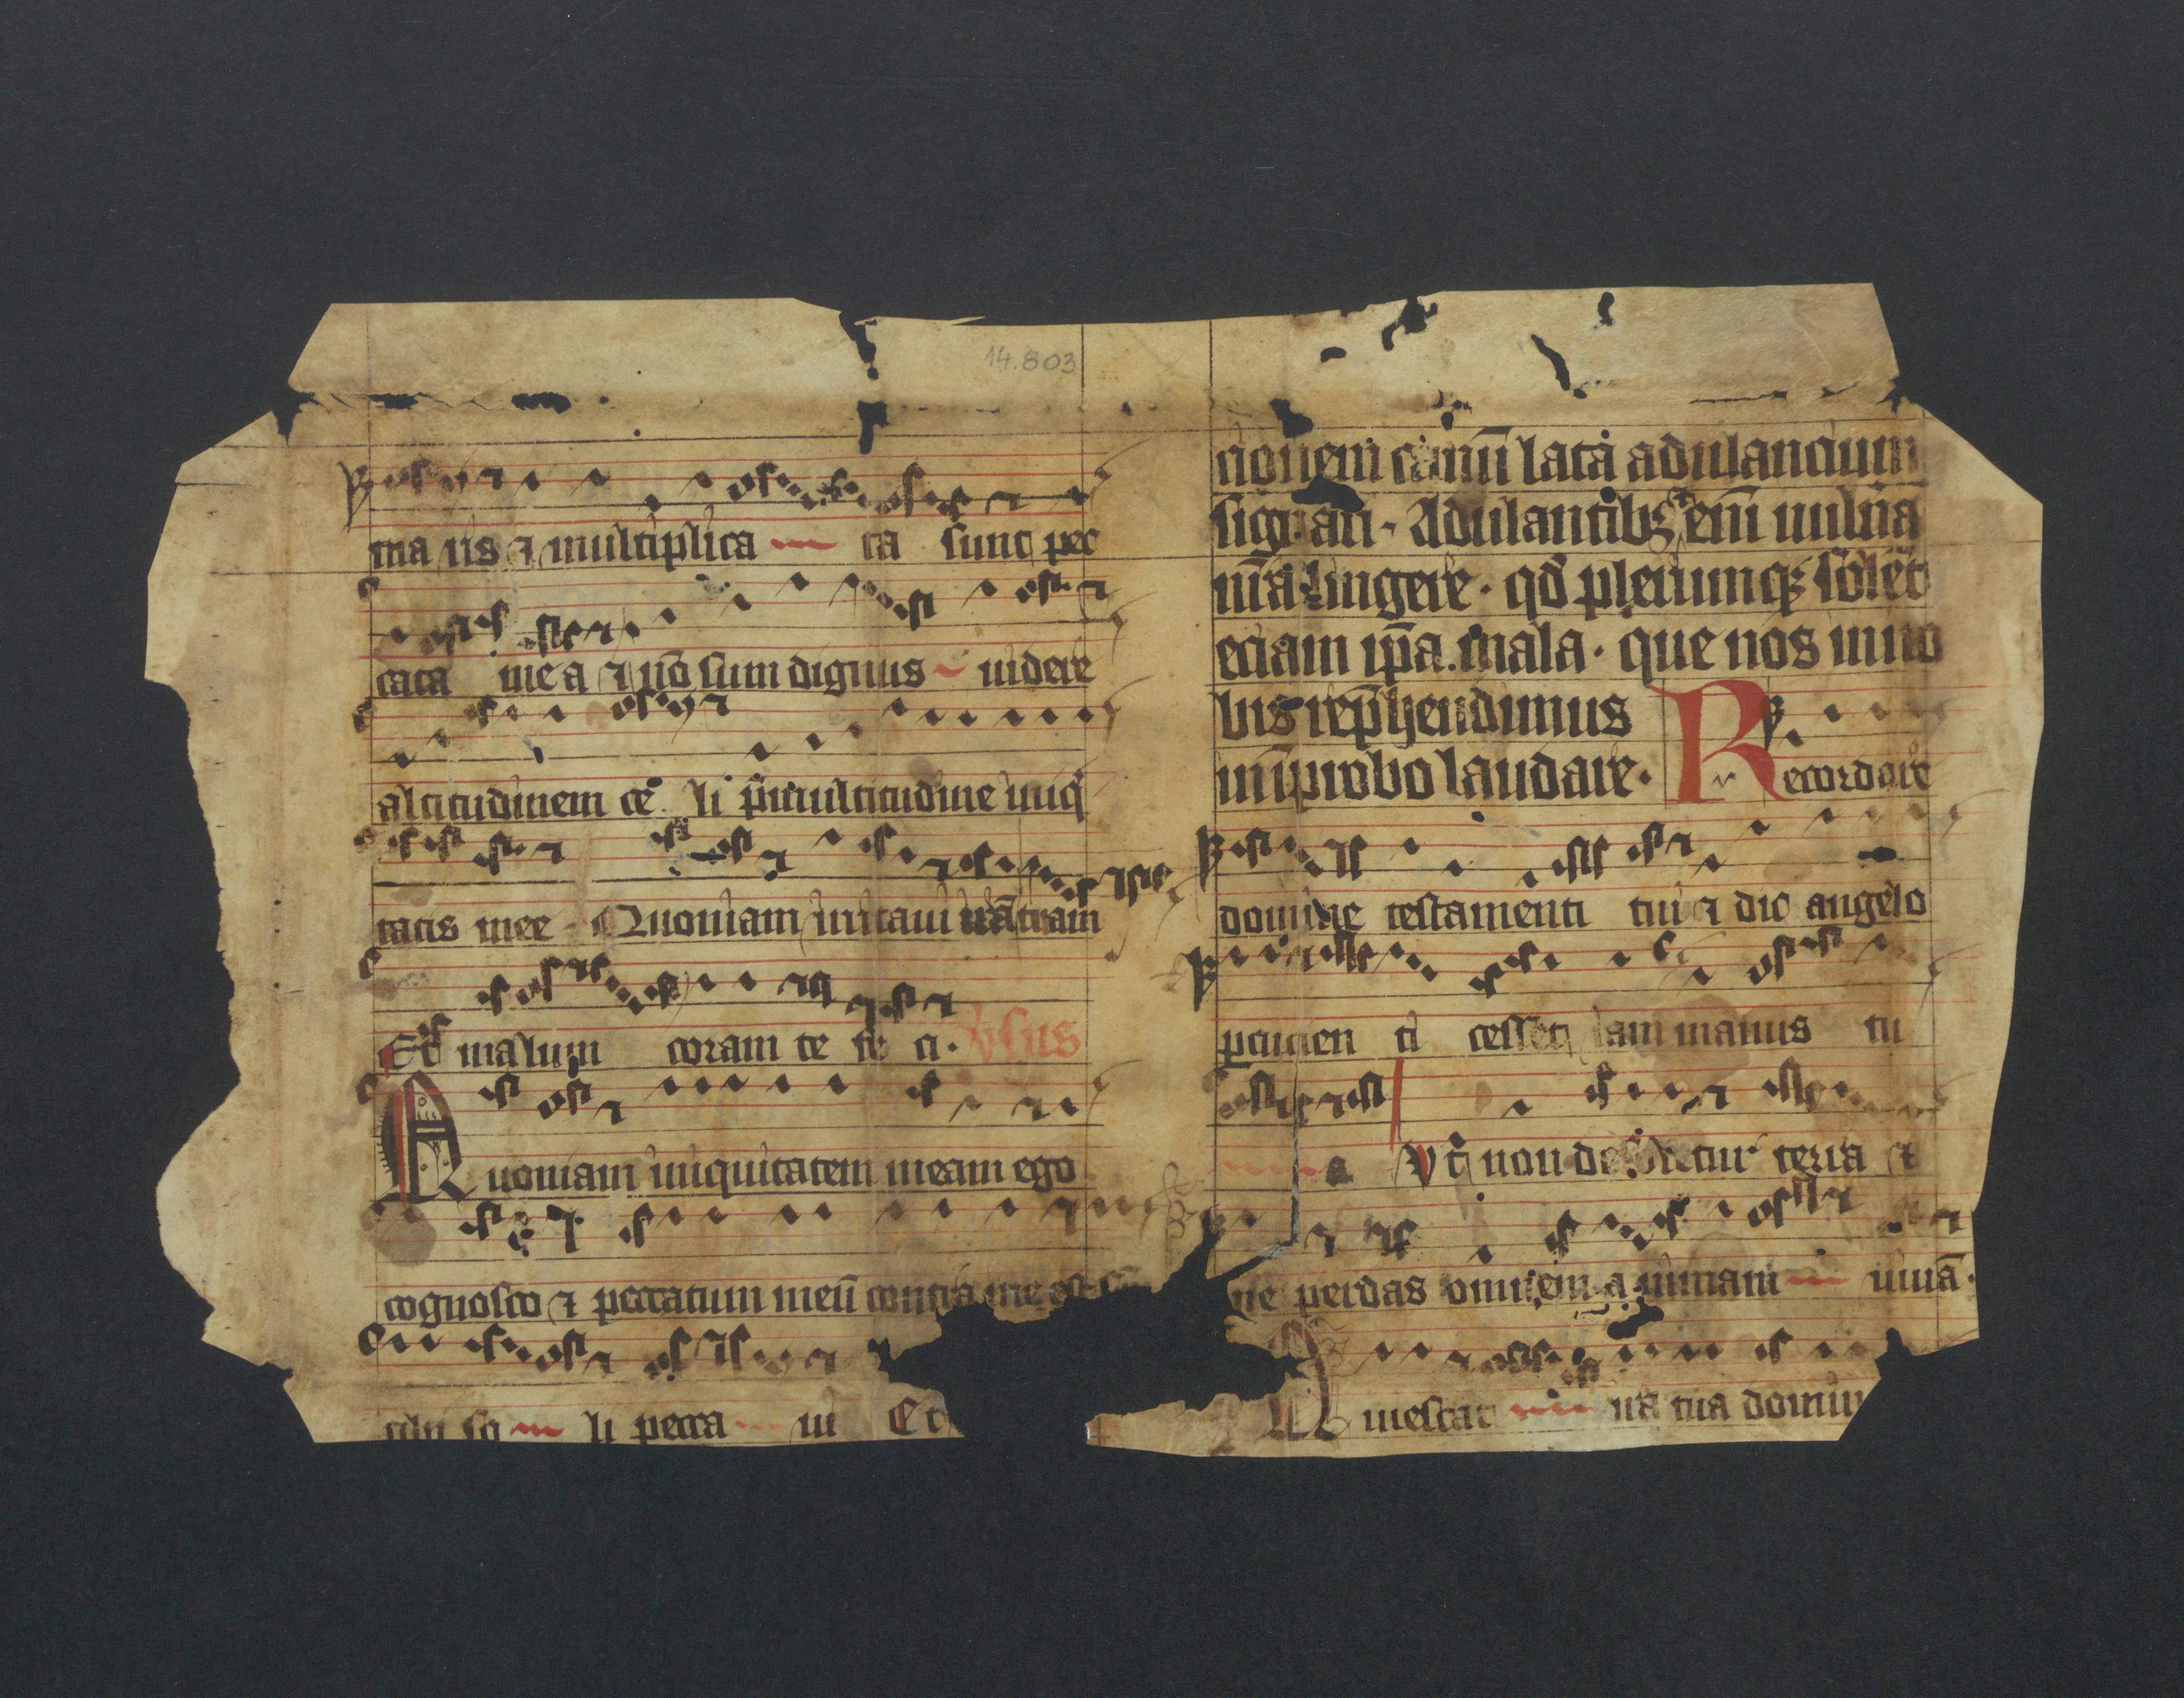 14.803
ma ris ⁊ multiplica ta sunt pec
cata mea ⁊ nō sum dignus videre
altitudinem ce li p̄ multitudine iniq̄
tatis mee Quoniam irritaui irā tuam
Et malum coram te fe ci. v̄sus
Quoniam iniquitatem meam ego
cognosco ⁊ peccatum meū contra me est
tibi so li pecca ui Et
cionem canū lata adulancium
signari. Adulantibꝫ em̄ vulnā
nr̄a lingere. qd̄ plerumqꝫ solēt
eciam ip̄a mala. que nos in no
bis rep̄hendimus
improbo laudare. Recordare
domine testamenti tui ⁊ dic angelo
ꝑcucien ti cesset iam manus tu
a Vt non desoletur terra ⁊
ne perdas omnem animam viuā.
Quiescat ira tua domin